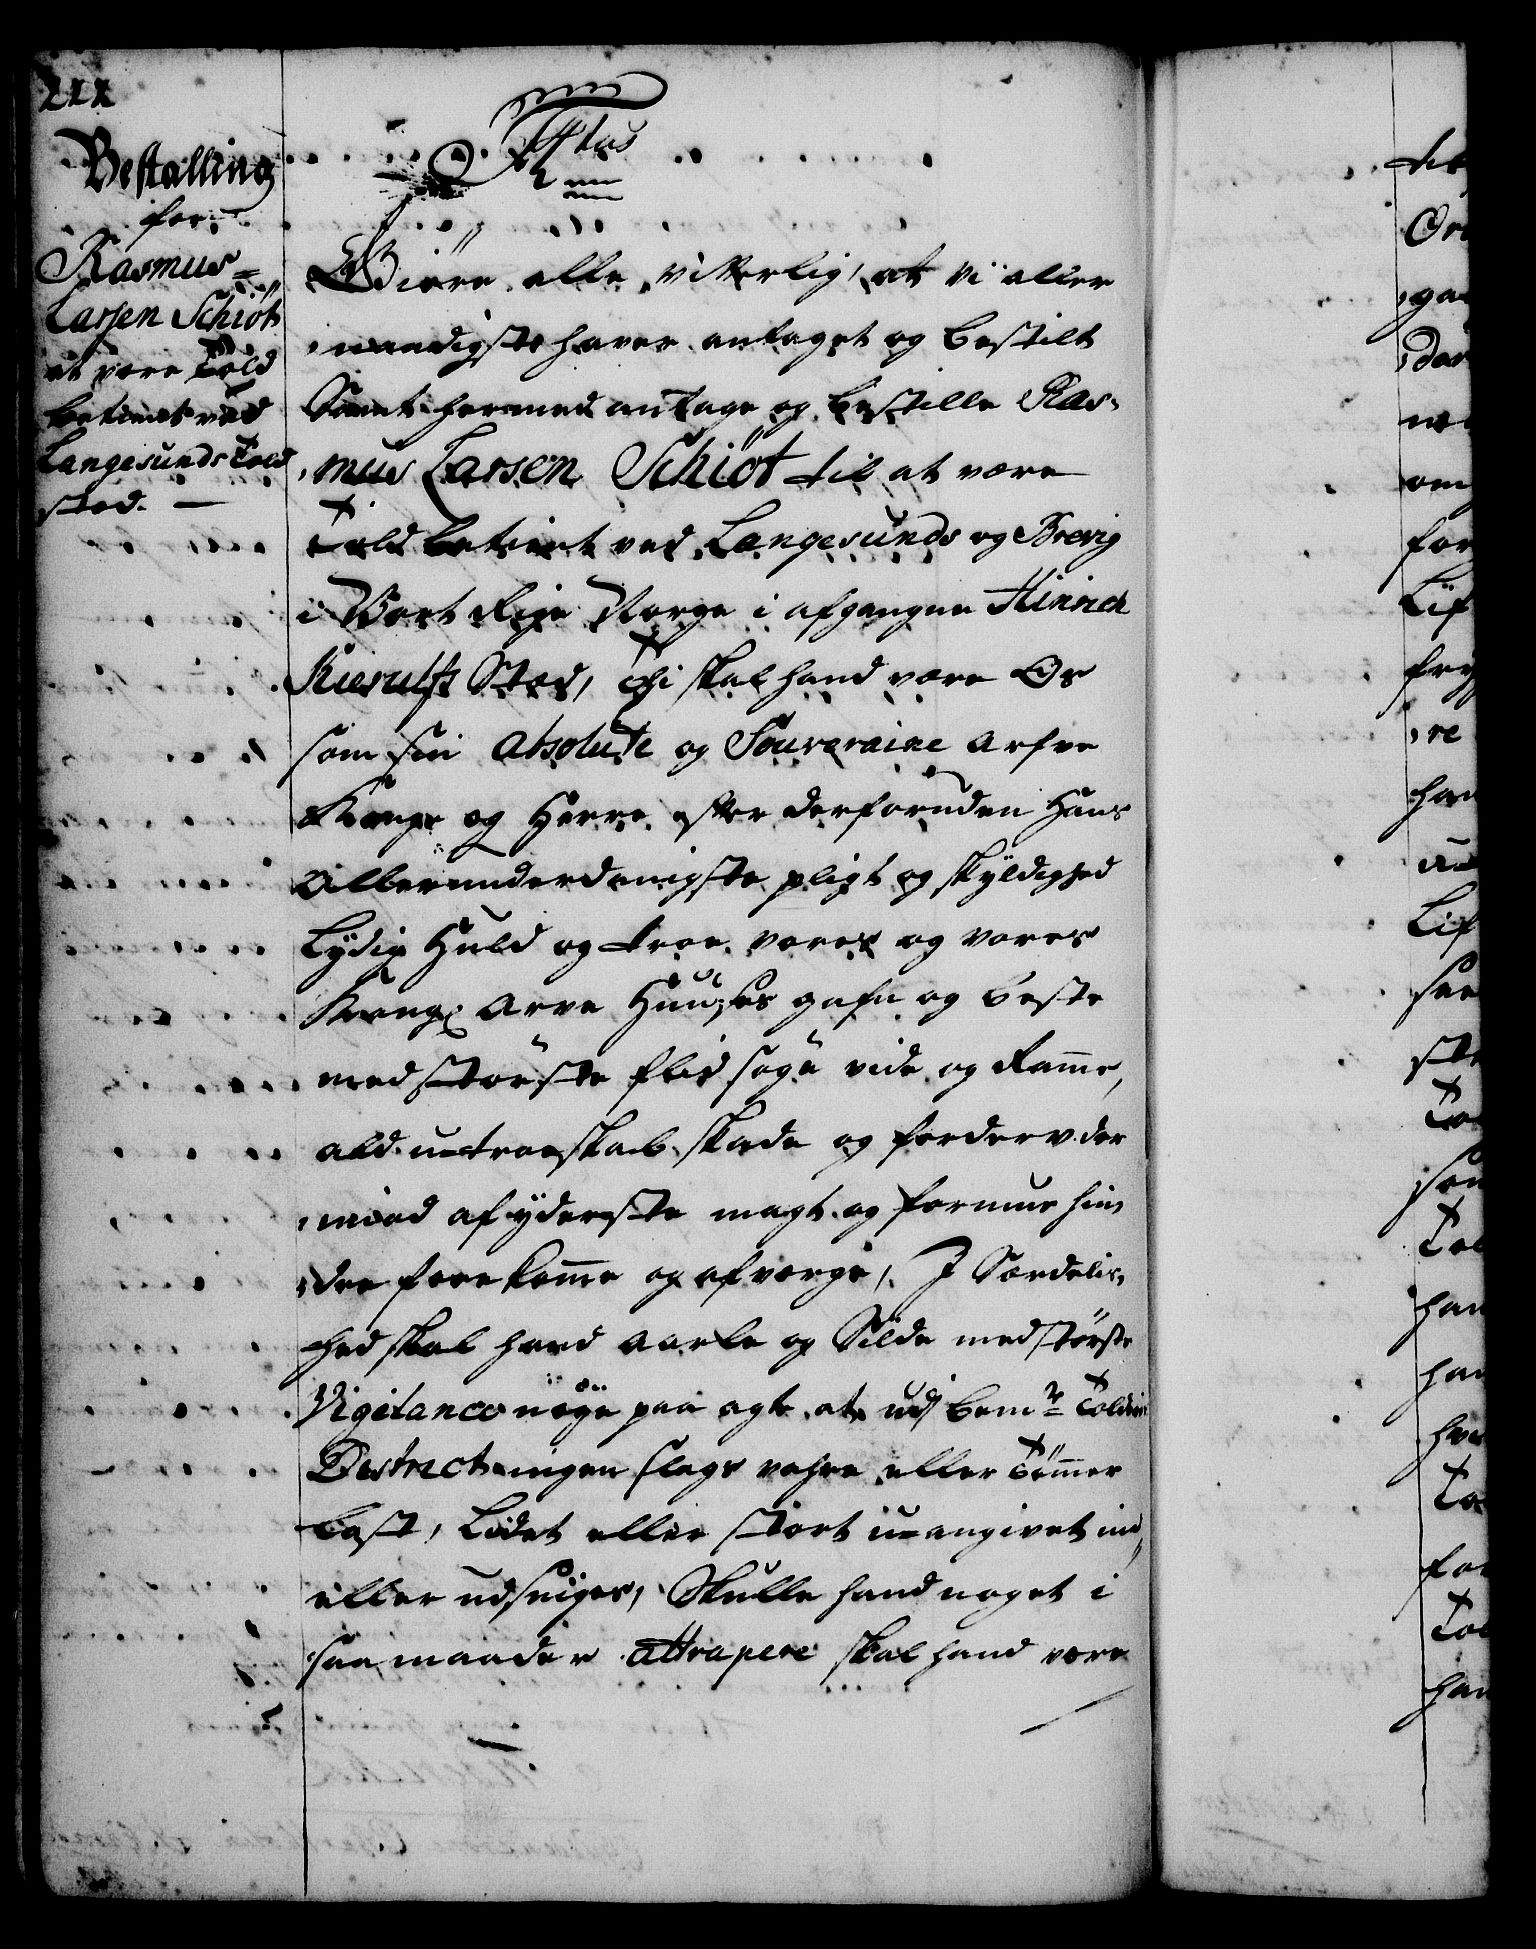 Bestalling
for
Rasmus
Larsen Schiöt
at være Told
betient ved
Langesunds Told
sted.
Giöre alle vitterlig, at Vi aller
naadigste haver antaget og bestilt
Samt hermed antage og bestille Ras-
mus Larsen Schiöt til at være
Told betient ved Langesunds og Brevig
i Vort Rige Norge i afgangne Hinrich
Stæd, Thi skal hand være Os
som sin Absolute og Souveraine Arfve
Konge og Herre, efter derforuden Hans
Allerunderdanigste pligt og skÿldighed
LÿdigHuld og troe, vores og vores
Kongl: Arve Huuses gafn og beste
med störste flid söge vide og Ramme,
ald u-troeskab skade og forderv der
imod af ÿderste magt og formue hin
dre forekomme og afverge, I Særdelis-
hed skal hand aarle og Silde med störste
Vigilance nöÿe paa agte, at udj bemte Told
District ingen slags vahre eller Tömmer
Last, Lidet eller stort u-angivet ind
eller udsniges, Skulle hand noget i
saa maader attrapere skal hand være